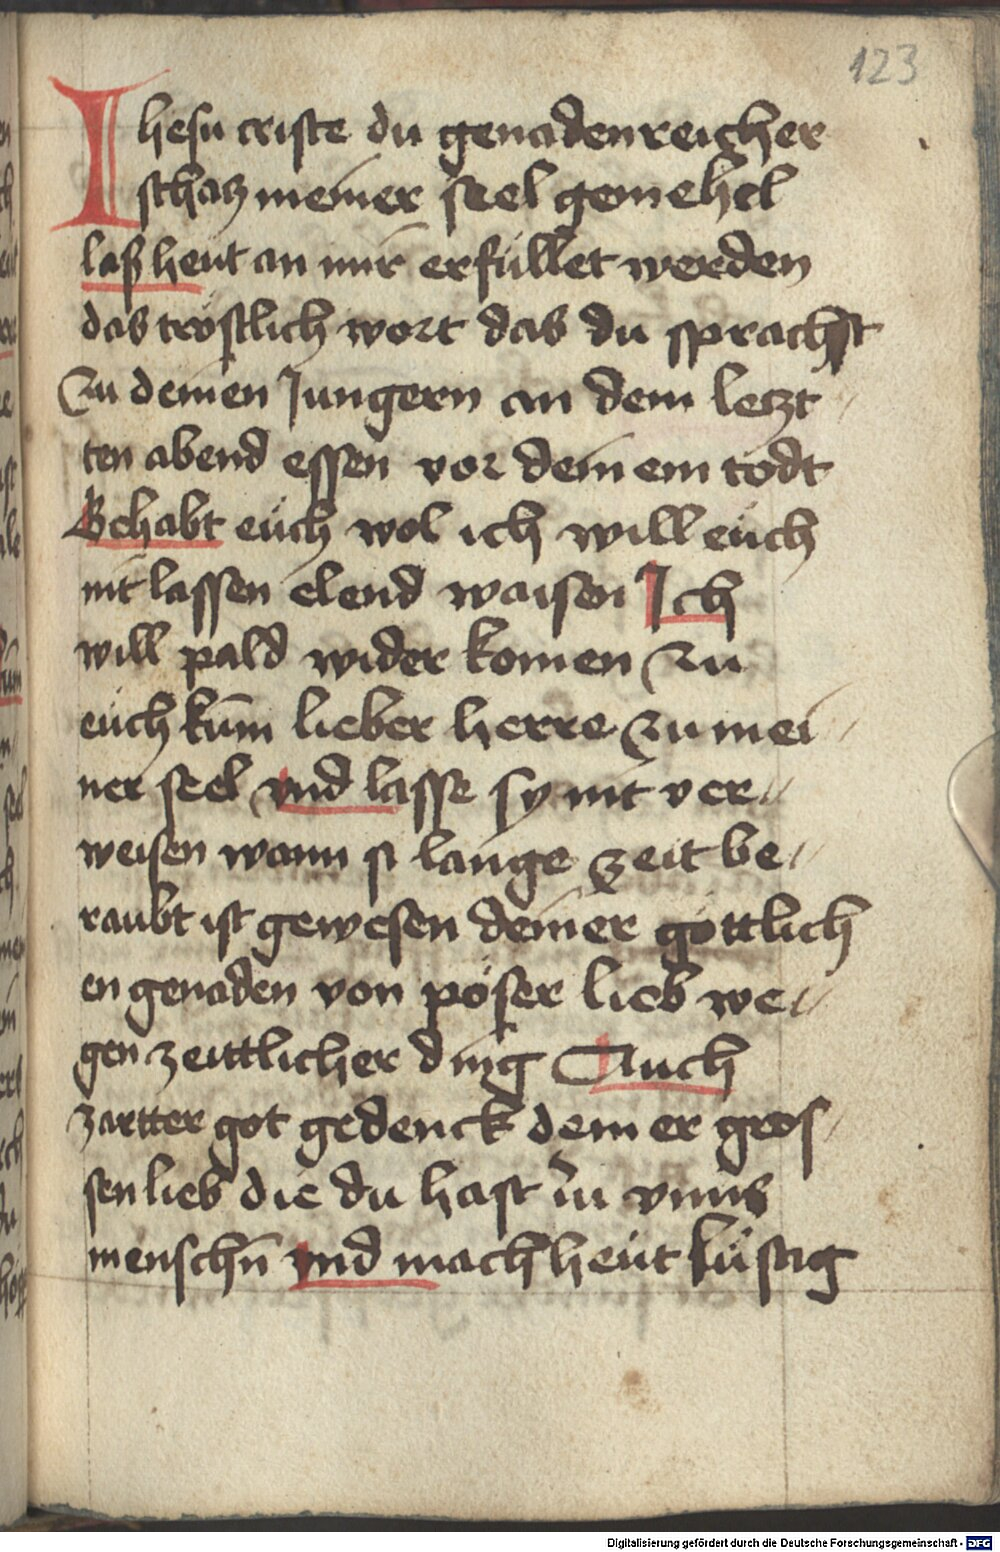 123
Ihesu criste du genadenreicher
schatz meiner seel gemehel
laß heut an mir erfüllet werden
das tröstlich wort das du sprachst
zu deinen Jungern an dem letzt
ten abend essen vor deinem todt
Gehabt eüch wol ich will eüch
nit lassen elend waisen Ich
will pald wider komen zu
eüch kum̄ lieber herre zu mei
ner seel vnd lasse sy nit ver
weisen wann si lange zeit be
raubt ist gewesen deiner göttlich
en genaden von pöser lieb we
gen zeittlicher ding Auch
zartter got gedenck deiner gros
sen lieb die du hast zu vnns
menschn̄ vnd mach heüt lüstig
Digitalisierung gefördert durch die Deutsche Forschungsgemeinschaft - DFG